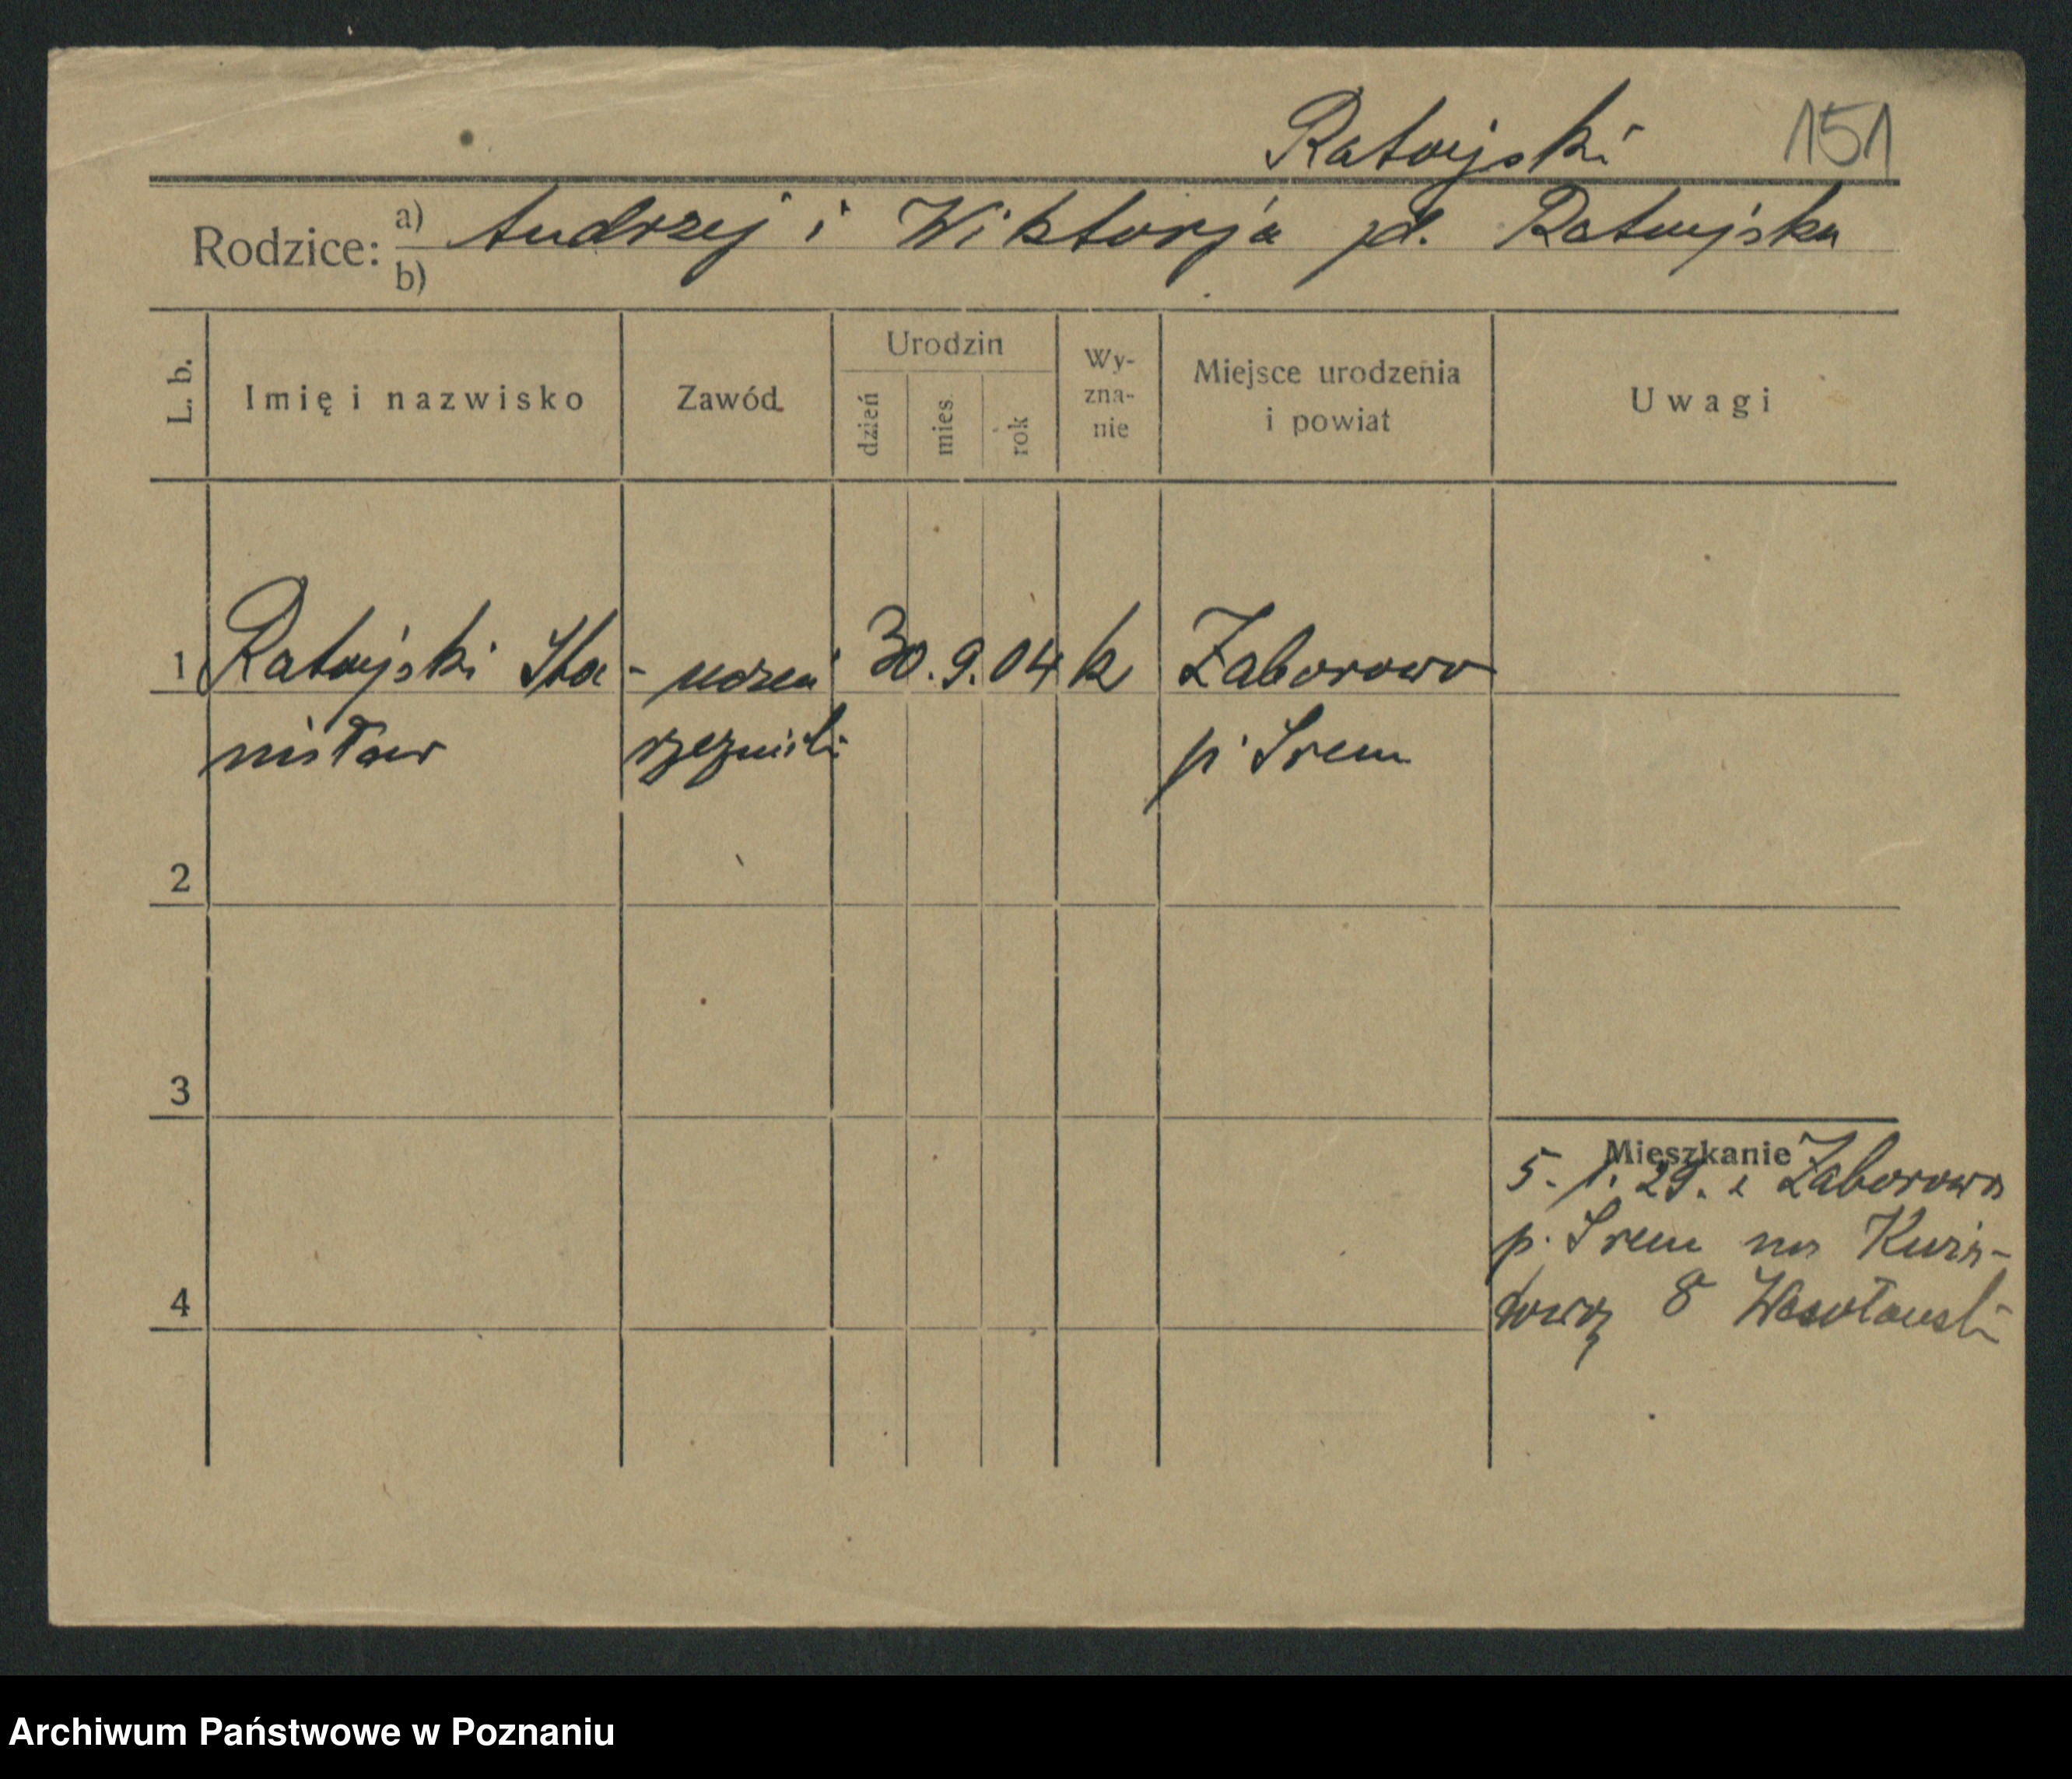 Ratajski 151
Rodzice: a) Andrzej i Wiktorja pd. Ratajska
b)
L. b. Imię i nazwisko Zawód Urodzin Wy- Miejsce urodzenia Uwagi
dzień mies. rok zna- i powiat
nie
1 Ratajski Sta- uczeń 30. 9. 04 k Zaborowo
nisław rzeźnicki p. Srem
2
3
Mieszkanie
5. 1. 29. z Zaborowo
p. Srem na
4 8
Archiwum Państwowe w Poznaniu